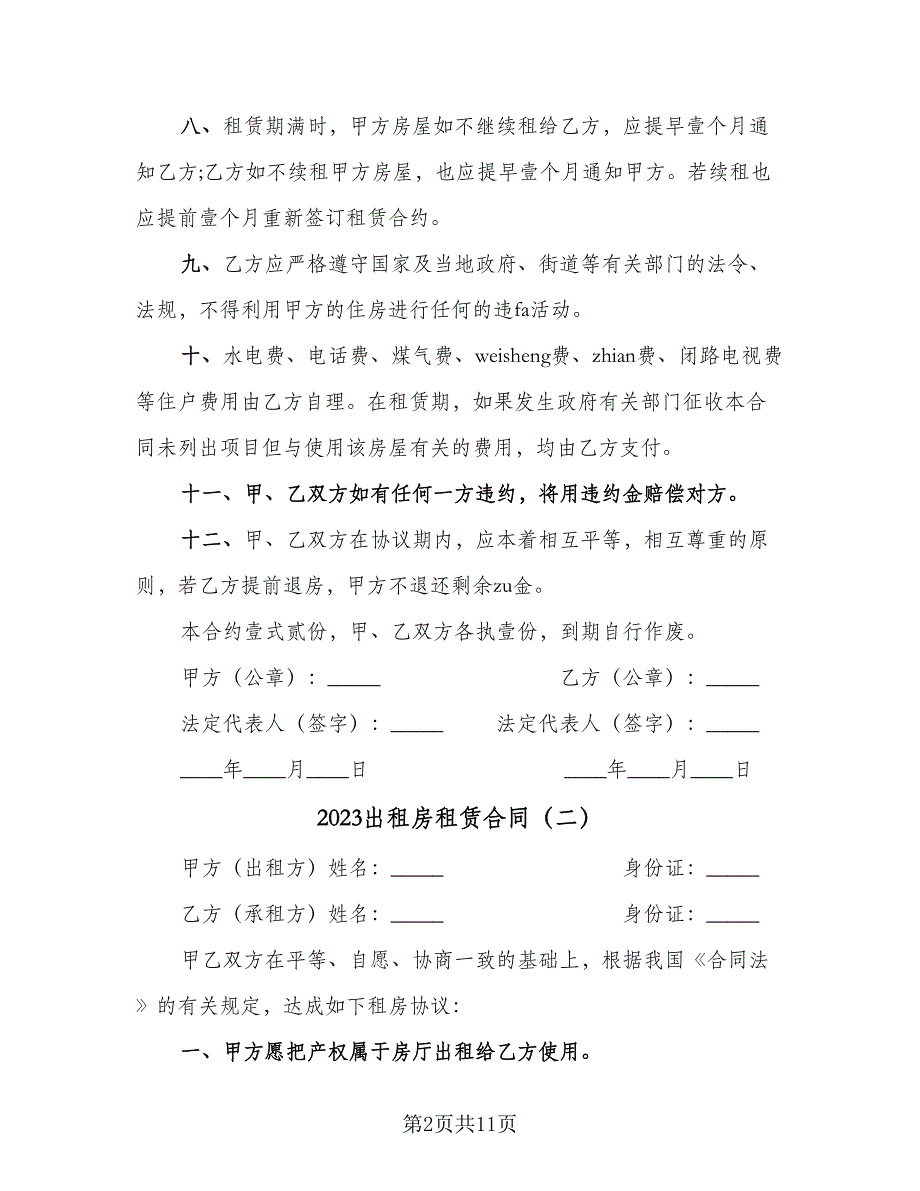 八、租赁期满时，甲方房屋如不继续租给乙方，应提早壹个月通
知乙方;乙方如不续租甲方房屋，也应提早壹个月通知甲方。若续租也
应提前壹个月重新签订租赁合约。
九、乙方应严格遵守国家及当地政府、街道等有关部门的法令、
法规，不得利用甲方的住房进行任何的违fa活动。
十、水电费、电话费、煤气费、weisheng费、zhian费、闭路电视费
等住户费用由乙方自理。在租赁期，如果发生政府有关部门征收本合
同未列出项目但与使用该房屋有关的费用，均由乙方支付。
十一、甲、乙双方如有任何一方违约，将用违约金赔偿对方。
十二、甲、乙双方在协议期内，应本着相互平等，相互尊重的原
则，若乙方提前退房，甲方不退还剩余zu金。
本合约壹式贰份，甲、乙双方各执壹份，到期自行作废。
甲方（公章）：_____ 乙方（公章）：_____
法定代表人（签字）：_____ 法定代表人（签字）：_____
____年____月____日 ____年____月____日
2023出租房租赁合同（二）
甲方（出租方）姓名：_____ 身份证：_____
乙方（承租方）姓名：_____ 身份证：_____
甲乙双方在平等、自愿、协商一致的基础上，根据我国《合同法
》的有关规定，达成如下租房协议：
一、甲方愿把产权属于房厅出租给乙方使用。
第2页共11页